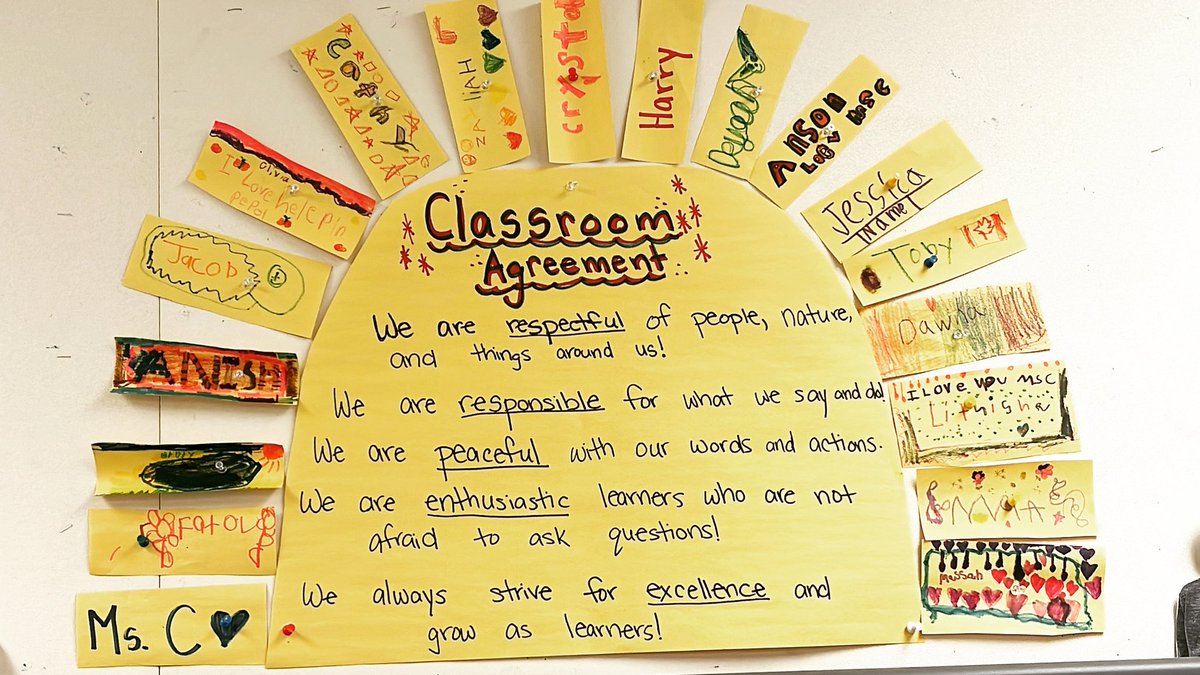 Classroom
Agreement
We are respectful of people, nature,
and things around us!
We are responsible for what we say and do!
We are peaceful with our words and actions.
We are enthusiastic learners who are not
afraid to ask questions!
We always strive for excellence and
grow as learners!
Ms. C
ANISH
Jacob
Olivia
I Love helepin
pepol
Cathy
ZAYliAH
crxstal
Harry
ANSON
LOVE MSC
Jessica
Toby
Dawsa
I LOVE YOU MSC
Lithisha
Meissah